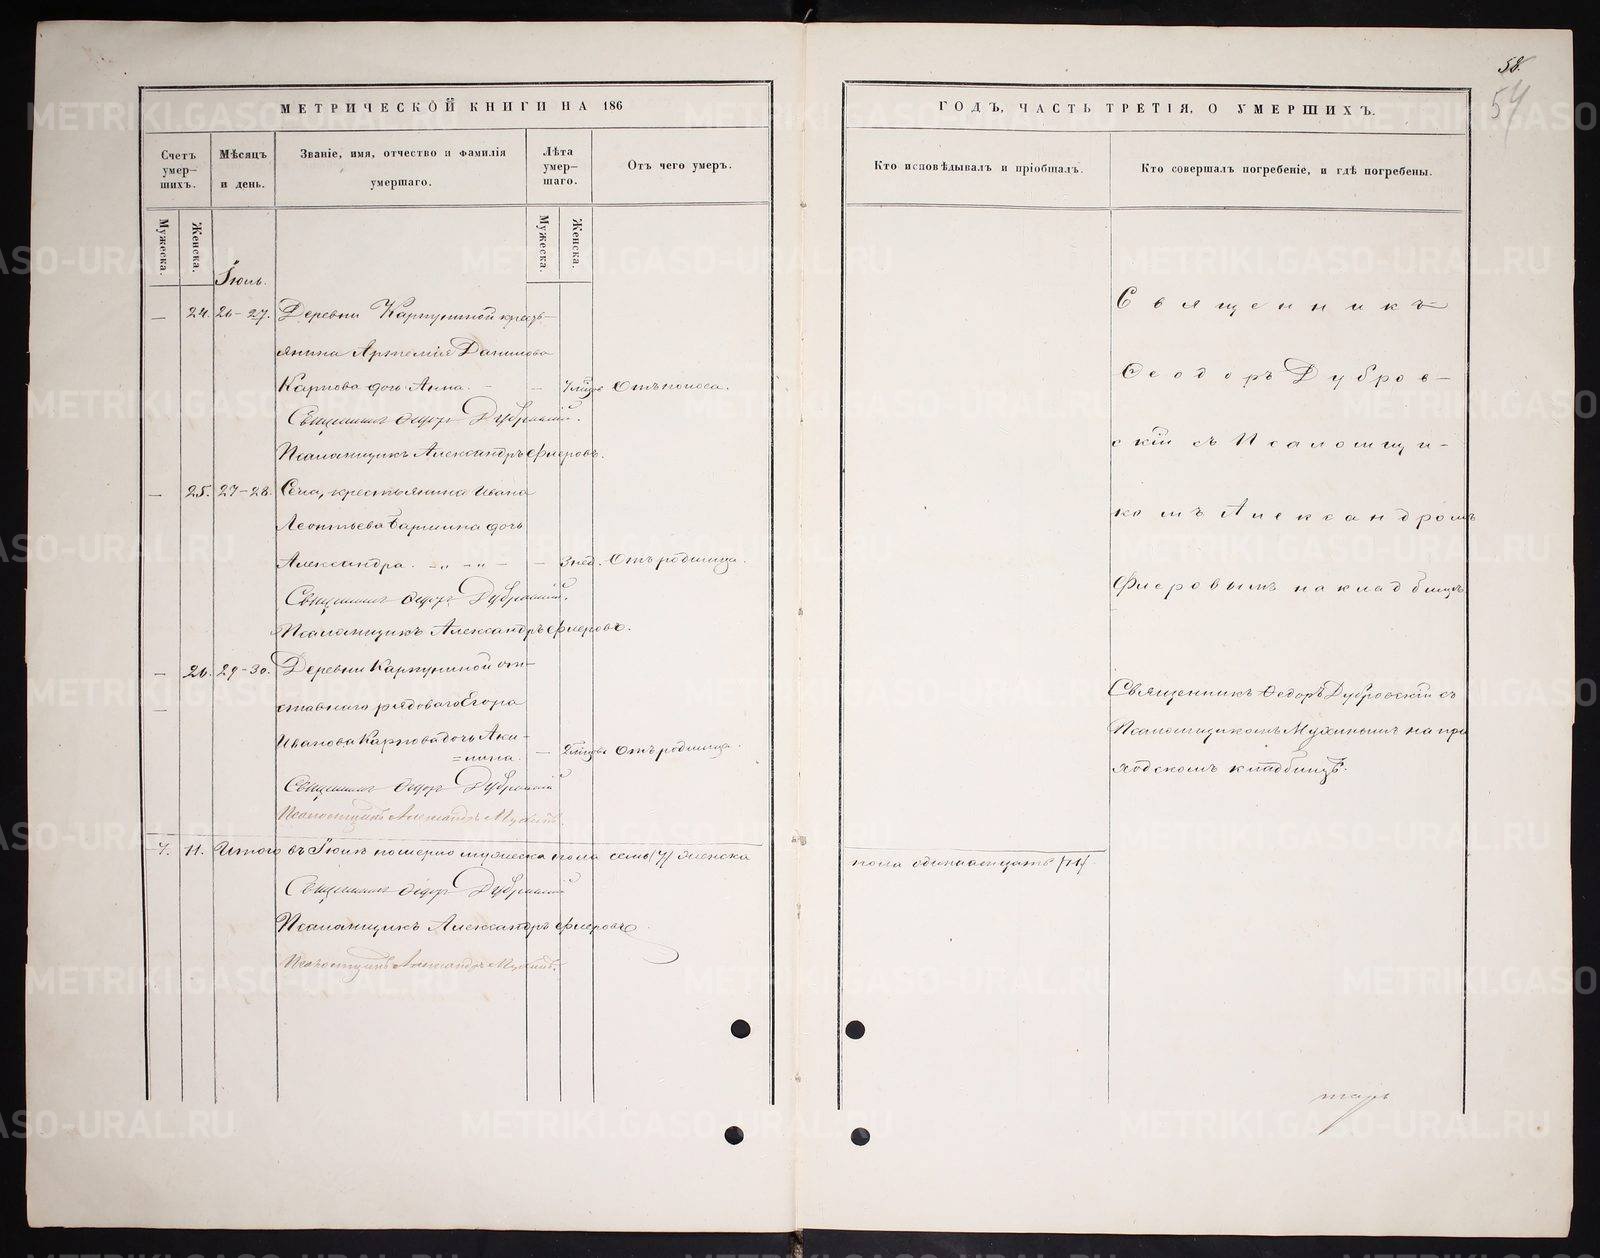 58.
54
МЕТРИЧЕСКОЙ КНИГИ НА 186
ГОДЪ, ЧАСТЬ ТРЕТІЯ, О УМЕРШИХЪ.
Счетъ умер-шихъ.
Мѣсяцъ и день.
Званіе, имя, отчество и фамилія умершаго.
Лѣта умер-шаго.
Отъ чего умеръ.
Кто исповѣдывалъ и пріобщалъ.
Кто совершалъ погребеніе, и гдѣ погребены.
Мужеска.
Женска.
Мужеска.
Женска.
Іюль.
— 24. 26-27. Деревни Карпушиной кресть-
янина Артемія Данилова
Карпова дочь Анна. — — Отъ поноса.
Священникъ Ѳедоръ Дубровскій.
Псаломщикъ Александръ Флеровъ.
— 25. 27-28. Села, крестьянина Ивана
Леонтьева дочь
Александра. — 3 нед. Отъ родимца.
Священникъ Ѳедоръ Дубровскій.
Псаломщикъ Александръ Флеровъ.
— 26. 29-30. Деревни Карпушиной от-
ставнаго рядоваго Егора
Иванова Карпова дочь Аки-
=лина. — Отъ родимца.
Священникъ Ѳедоръ Дубровскій
Псаломщикъ Александръ Мухинъ.
7. 11. Итого въ Іюлѣ померло мужеска пола семь (7) женска
пола одиннадцать (11).
Священникъ Ѳедоръ Дубровскій
Псаломщикъ Александръ Флеровъ
Псаломщикъ Александръ Мухинъ.
Священникъ
Ѳеодоръ Дубров-
скій съ Псаломщи-
комъ Александромъ
Флеровымъ на кладбищѣ
Священникъ Ѳедоръ Дубровскій съ
Псаломщикомъ Мухинымъ на при
ходскомъ кладбищѣ.
тарь
METRIKI.GASO-URAL.RU